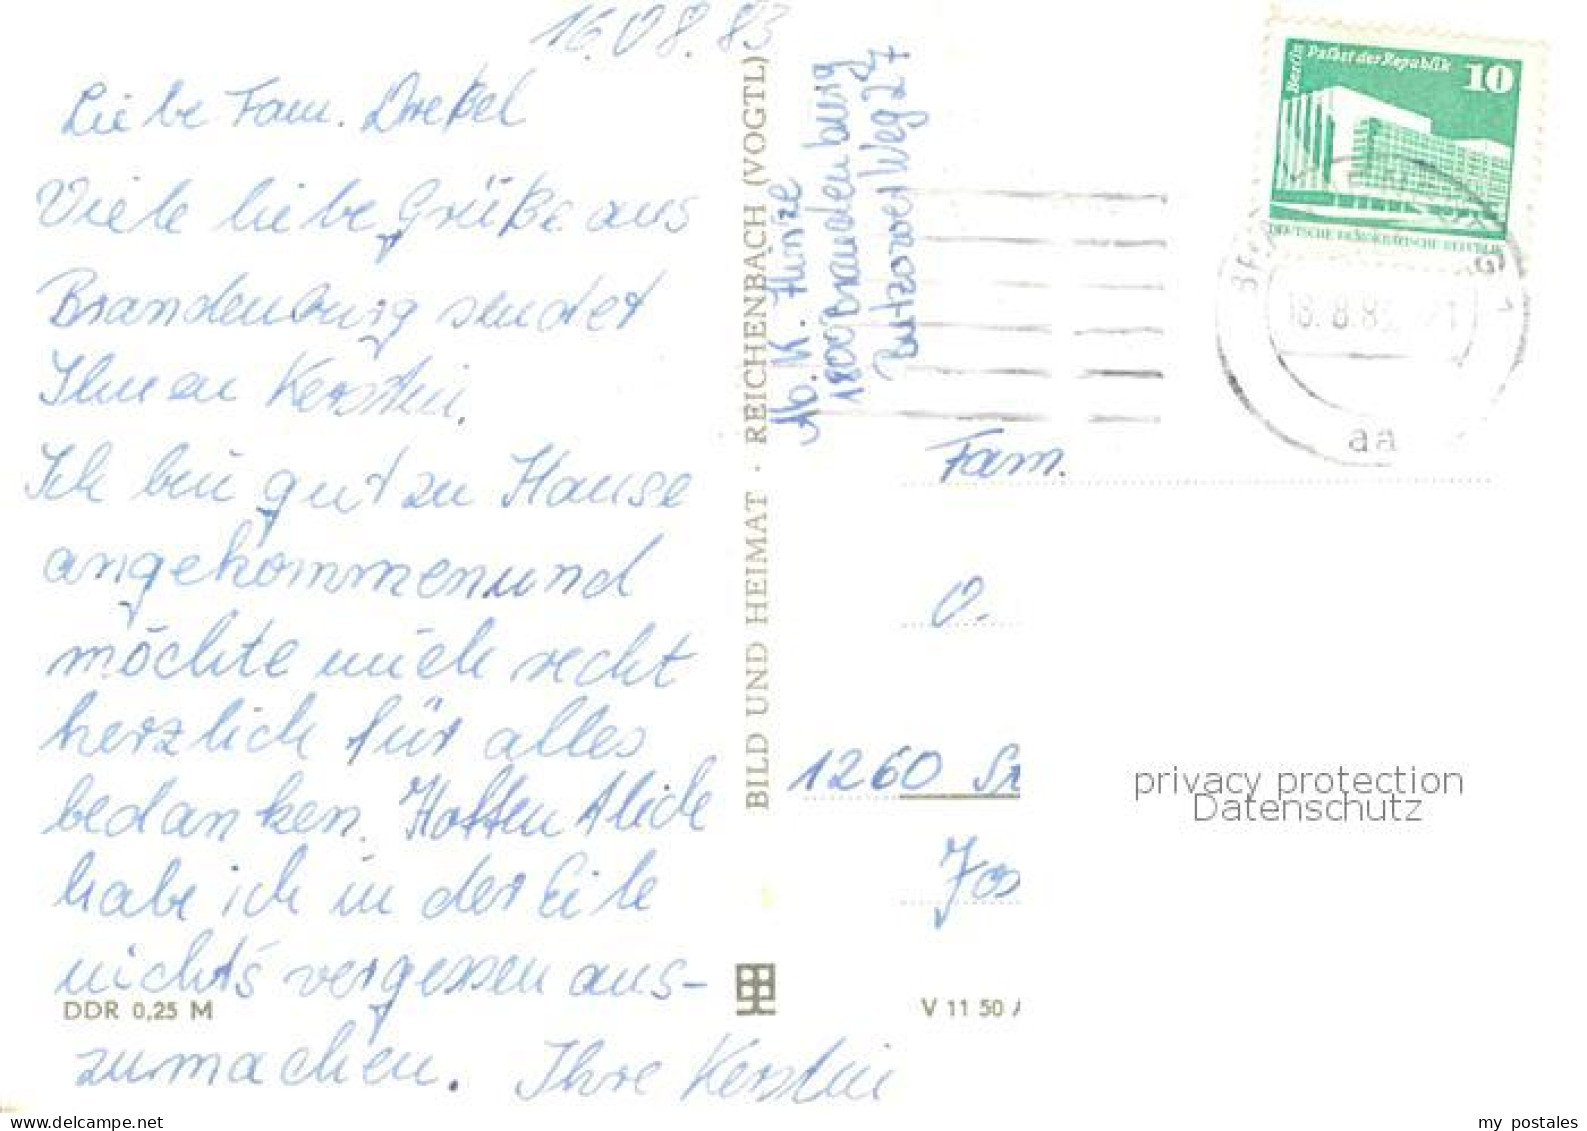 16.08.83
Liebe Fam. Drexel
Viele liebe Grüße aus
Brandenburg sendet
Ihnen Kerstin.
Ich bin gut zu Hause
angekommen und
möchte mich recht
herzlich für alles
bedanken. Hoffentlich
habe ich in der Eile
nichts vergessen aus-
zumachen. Ihre Kerstin
DDR 0,25 M
BILD UND HEIMAT · REICHENBACH (VOGTL)
Ab. K. Hinze
1800 Brandenburg
Butzower Weg 27
Berlin Palast der Republik
10
DEUTSCHE DEMOKRATISCHE REPUBLIK
18. 8. 83
aa
Fam.
O.
1260 Str
Jos
V 11 50 A
privacy protection
Datenschutz
www.delcampe.net
my postales